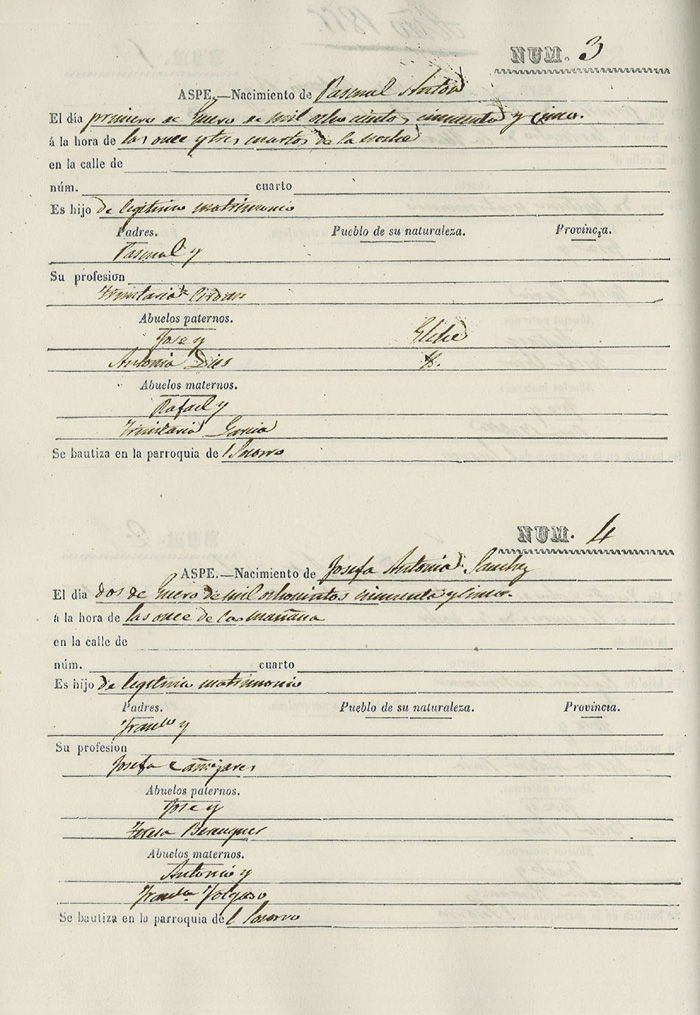 NUM. 3
ASPE.—Nacimiento de Pascual Antón
El dia primero de Enero de mil ochocientos, cincuenta y cinco.
á la hora de las once y tres cuartos de la noche
en la calle de
núm. cuarto
Es hijo de legitimo matrimonio
Padres. Pueblo de su naturaleza. Provincia.
Pascual y
Su profesion
Trinitaria
Abuelos paternos.
Jose y Elche
Antonia Dies
Abuelos maternos.
Rafael y
Trinitaria Garcia
Se bautiza en la parroquia de l Socorro
NUM. 4
ASPE.—Nacimiento de Josefa Antonia Sanchez
El dia dos de Enero de mil ochocientos cincuenta y cinco.
á la hora de las once de la mañana
en la calle de
núm. cuarto
Es hijo de legitimo matrimonio
Padres. Pueblo de su naturaleza. Provincia.
Franco y
Su profesion
Josefa Cañizares
Abuelos paternos.
Jose y
Teresa Berenguer
Abuelos maternos.
Antonio y
Franca
Se bautiza en la parroquia de l Socorro